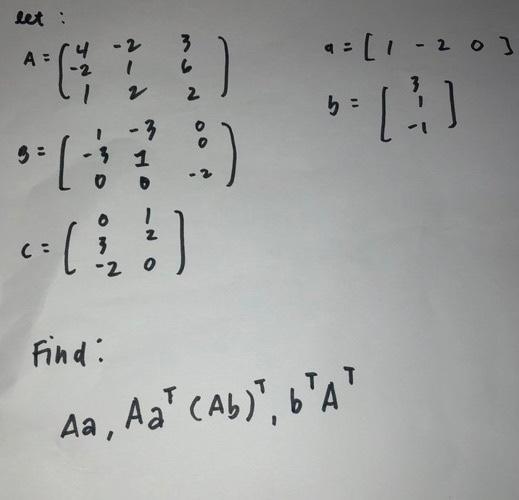 let :
A = [ 4 -2 3
-2 1 6
1 2 2 ]
a = [ 1 -2 0 ]
b = [ 3
1
-1 ]
B = [ 1 -3 0
-3 1 0
0 0 -2 ]
C = [ 0 1
3 2
-2 0 ]
Find :
Aa, Aaᵀ (Ab)ᵀ, bᵀAᵀ